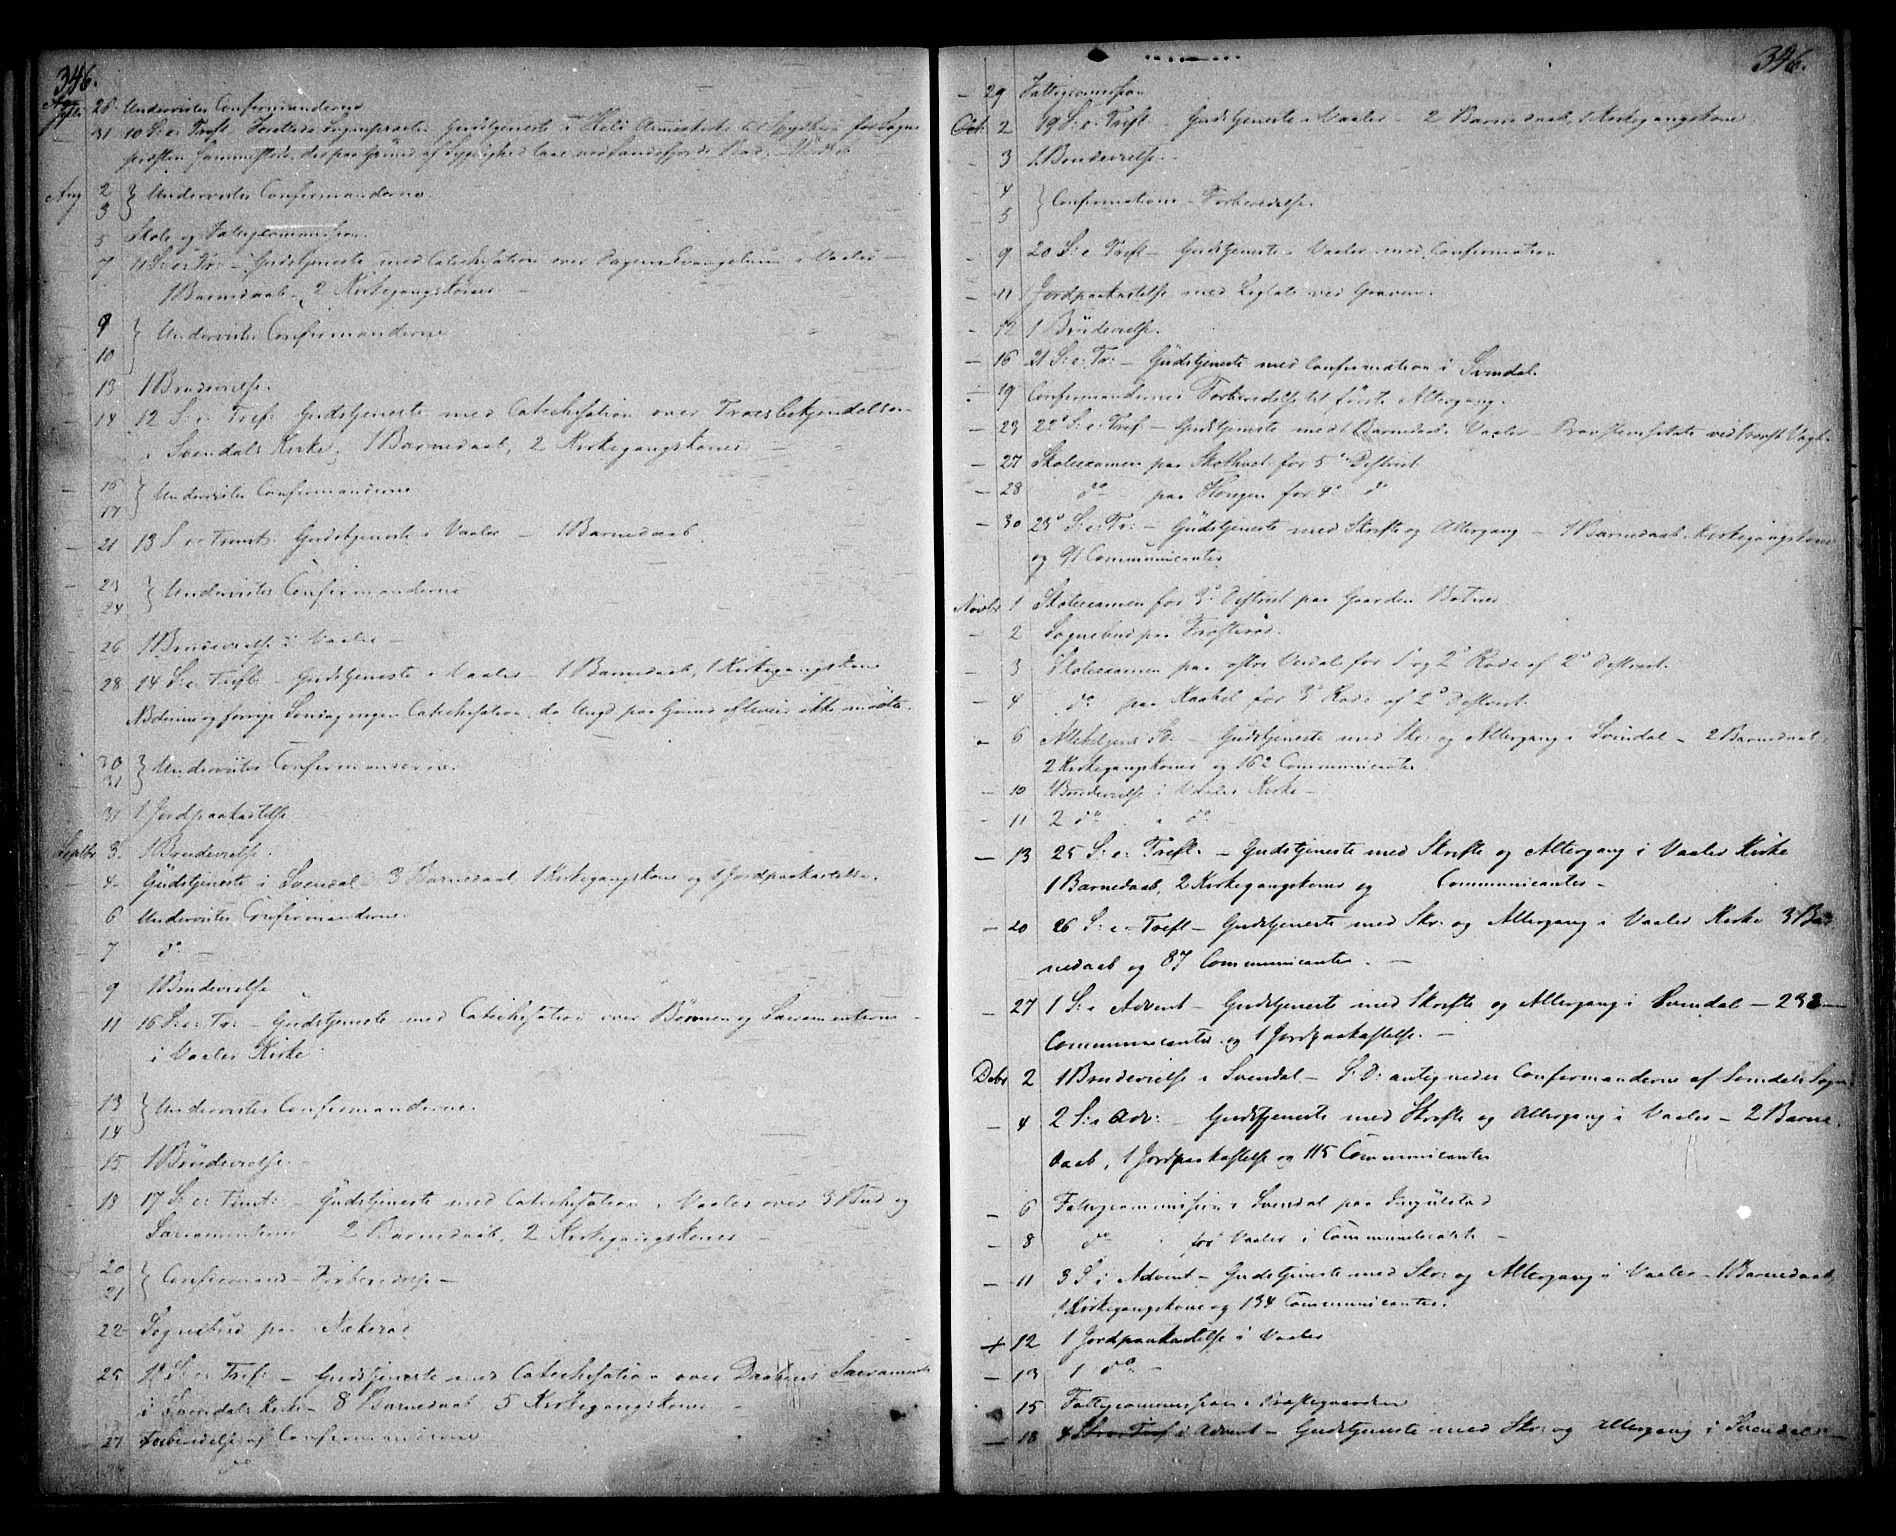 346.
28. Underviste Confirmanderne
31 10 S: e: Tref. Gudstjeneste i
Aug 2 } Underviste Confirmanderne.
3
5 Skole og Fattigcommission.
7 11 S: e: Tr: – Gudstjeneste med Catechisation over Dagens Evangelium i Vaaler –
1 Barnedaab, 2 Kirkegangskoner –
9 } Underviste Confirmanderne
10
13 1 Brudevielse.
14 12 S: e: Tref: Gudstjeneste med Catechisation over Troesbekjendelsen
i Svendals Kirke, 1 Barnedaab, 2 Kirkegangskoner –
16 } Underviste Confirmanderne
17
21 13 S: e: Trinit: Gudstjeneste i Vaaler – 1 Barnedaab.
23 } Underviste Confirmanderne
24
26 1 Brudevielse i Vaaler –
28 14 S: e: Tref: – Gudstjeneste i Vaaler – 1 Barnedaab, 1 Kirkegangskone
denne og forrige Søndag ingen Catechisation, da Ungd. paa Grund af ikke mødte.
30 } Underviste Confirmanderne.
31
31 1 Jordpaakastelse
Septbr 3. 1 Brudevielse.
4 Gudstjeneste i Svendal – 3 Barnedaab, 1 Kirkegangskone og 1 Jordpaakastelse.
6 Underviste Confirmanderne.
7 do –
9 1 Brudevielse
11 16 S: e: Tr: – Gudstjeneste med Catechisation over Bønnen og Sacramenterne –
i Vaaler Kirke
13 } Underviste Confirmanderne.
14
15 1 Brudevielse.
18 17 S: e: Trinit: – Gudstjeneste med Catechisation i Vaaler over 3 Bud og
Sacramenterne 2 Barnedaab, 2 Kirkegangskoner –
20 } Confirmand-Forberedelse –
21
22 Sognebud paa Nækerød
25 18 S: e: Tref: – Gudstjeneste med Catechisation over Daabens Sacramente
i Svendals Kirke – 8 Barnedaab 5 Kirkegangskoner –
27 Forberedelse af Confirmanderne
do
346.
– 29 Fattigcommission
Oct. 2 19 S: e: Tref. – Gudstjeneste i Vaaler – 2 Barnedaab, 1 Kirkegangskone
– 3 1 Brudevielse. –
4 } Confirmations-Forberedelse.
5
– 9 20 S: e: Tref – Gudstjeneste i Vaaler med Confirmation
– 11 Jordpaakastelse med Ligtale ved Graven.
– 12 1 Brudevielse.
– 16 21 S: e: Tr: – Gudstjeneste med Confirmation i Svendal.
– 19 Confirmandernes Forberedelse til første Altergang.
– 23 22o S: e: Tref – Gudstjeneste med 1 Barnedaab i Vaaler – Provstevisitats ved Provst
– 27 Skoleexamen paa for 5o District
– 28 do paa for 4o do
– 30 23o S: e: Tr: – Gudstjeneste med Skrifte og Altergang – 1 Barnedaab, Kirkegangskone
og 91 Communicanter
Novbr 1 Skoleexamen for 3o District paa Gaarden Botner
– 2 Sognebud paa
– 3 Skoleexamen paa for 1 og 2o Rode af 2o District.
– 4 do paa for 3o Rode af 2o District.
– 6 Allehelgens S. – Gudstjeneste med Skr: og Altergang i Svindal – 2 Barnedaab,
2 Kirkegangskoner og 162 Communicanter
– 10 1 Brudevielse i Vaaler Kirke –
– 11 2 do do –
– 13 25 S: e: Tref. – Gudstjeneste med Skrifte og Altergang i Vaaler Kirke
1 Barnedaab, 2 Kirkegangskoner og Communicanter –
– 20 26 S: e: Tref – Gudstjeneste med Skr: og Altergang i Vaaler Kirke 3 Bar
nedaab og 87 Communicanter. –
– 27 1 S: i Advent – Gudstjeneste med Skrifte og Altergang i Svendal – 233
Communicanter og 1 Jordpaakastelse. –
Debr 2 1 Brudevielse i Svendal – S: D: antegnedes Confirmanderne af Svendals Sogn
– 4 2 S: i Adv: – Gudstjeneste med Skrifte og Altergang i Vaaler – 2 Barne
daab, 1 Jordpaakastelse og 115 Communicanter
– 6 Fattigcommission i Svendal paa Ingulstad
– 8 do for Vaaler i –
– 11 3 S: i Advent – Gudstjeneste med Skr: og Altergang i Vaaler – 1 Barnedaab,
1 Kirkegangskone og 134 Communicanter.
+ 12 1 Jordpaakastelse i Vaaler
– 13 1 do –
15 Fattigcommission i Præstegaarden
– 18 4 S: i Advent – Gudstjeneste med Skr: og Altergang i Svendals –